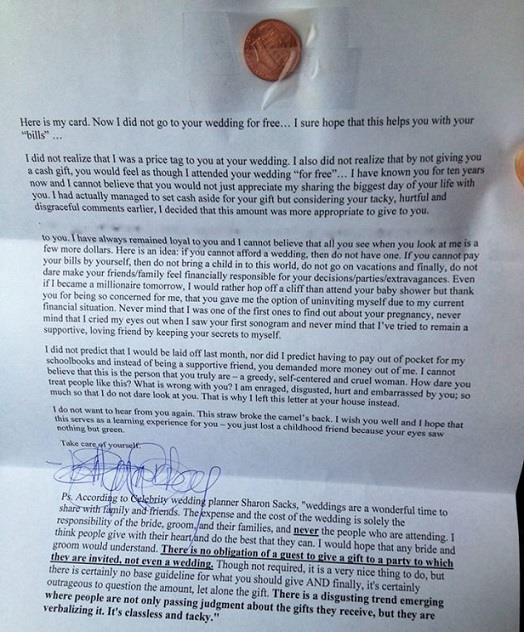 Here is my card. Now I did not go to your wedding for free… I sure hope that this helps you with your
“bills” …
I did not realize that I was a price tag to you at your wedding. I also did not realize that by not giving you
a cash gift, you would feel as though I attended your wedding “for free”… I have known you for ten years
now and I cannot believe that you would not just appreciate my sharing the biggest day of your life with
you. I had actually managed to set cash aside for your gift but considering your tacky, hurtful and
disgraceful comments earlier, I decided that this amount was more appropriate to give to you.
to you. I have always remained loyal to you and I cannot believe that all you see when you look at me is a
few more dollars. Here is an idea: if you cannot afford a wedding, then do not have one. If you cannot pay
your bills by yourself, then do not bring a child in to this world, do not go on vacations and finally, do not
dare make your friends/family feel financially responsible for your decisions/parties/extravagances. Even
if I became a millionaire tomorrow, I would rather hop off a cliff than attend your baby shower but thank
you for being so concerned for me, that you gave me the option of uninviting myself due to my current
financial situation. Never mind that I was one of the first ones to find out about your pregnancy, never
mind that I cried my eyes out when I saw your first sonogram and never mind that I’ve tried to remain a
supportive, loving friend by keeping your secrets to myself.
I did not predict that I would be laid off last month, nor did I predict having to pay out of pocket for my
schoolbooks and instead of being a supportive friend, you demanded more money out of me. I cannot
believe that this is the person that you truly are – a greedy, self-centered and cruel woman. How dare you
treat people like this? What is wrong with you? I am enraged, disgusted, hurt and embarrassed by you; so
much so that I do not dare look at you. That is why I left this letter at your house instead.
I do not want to hear from you again. This straw broke the camel’s back. I wish you well and I hope that
this serves as a learning experience for you – you just lost a childhood friend because your eyes saw
nothing but green.
Take care of yourself.
Ps. According to Celebrity wedding planner Sharon Sacks, "weddings are a wonderful time to
share with family and friends. The expense and the cost of the wedding is solely the
responsibility of the bride, groom, and their families, and never the people who are attending. I
think people give with their heart and do the best that they can. I would hope that any bride and
groom would understand. There is no obligation of a guest to give a gift to a party to which
they are invited, not even a wedding. Though not required, it is a very nice thing to do, but
there is certainly no base guideline for what you should give AND finally, it's certainly
outrageous to question the amount, let alone the gift. There is a disgusting trend emerging
where people are not only passing judgment about the gifts they receive, but they are
verbalizing it. It's classless and tacky."